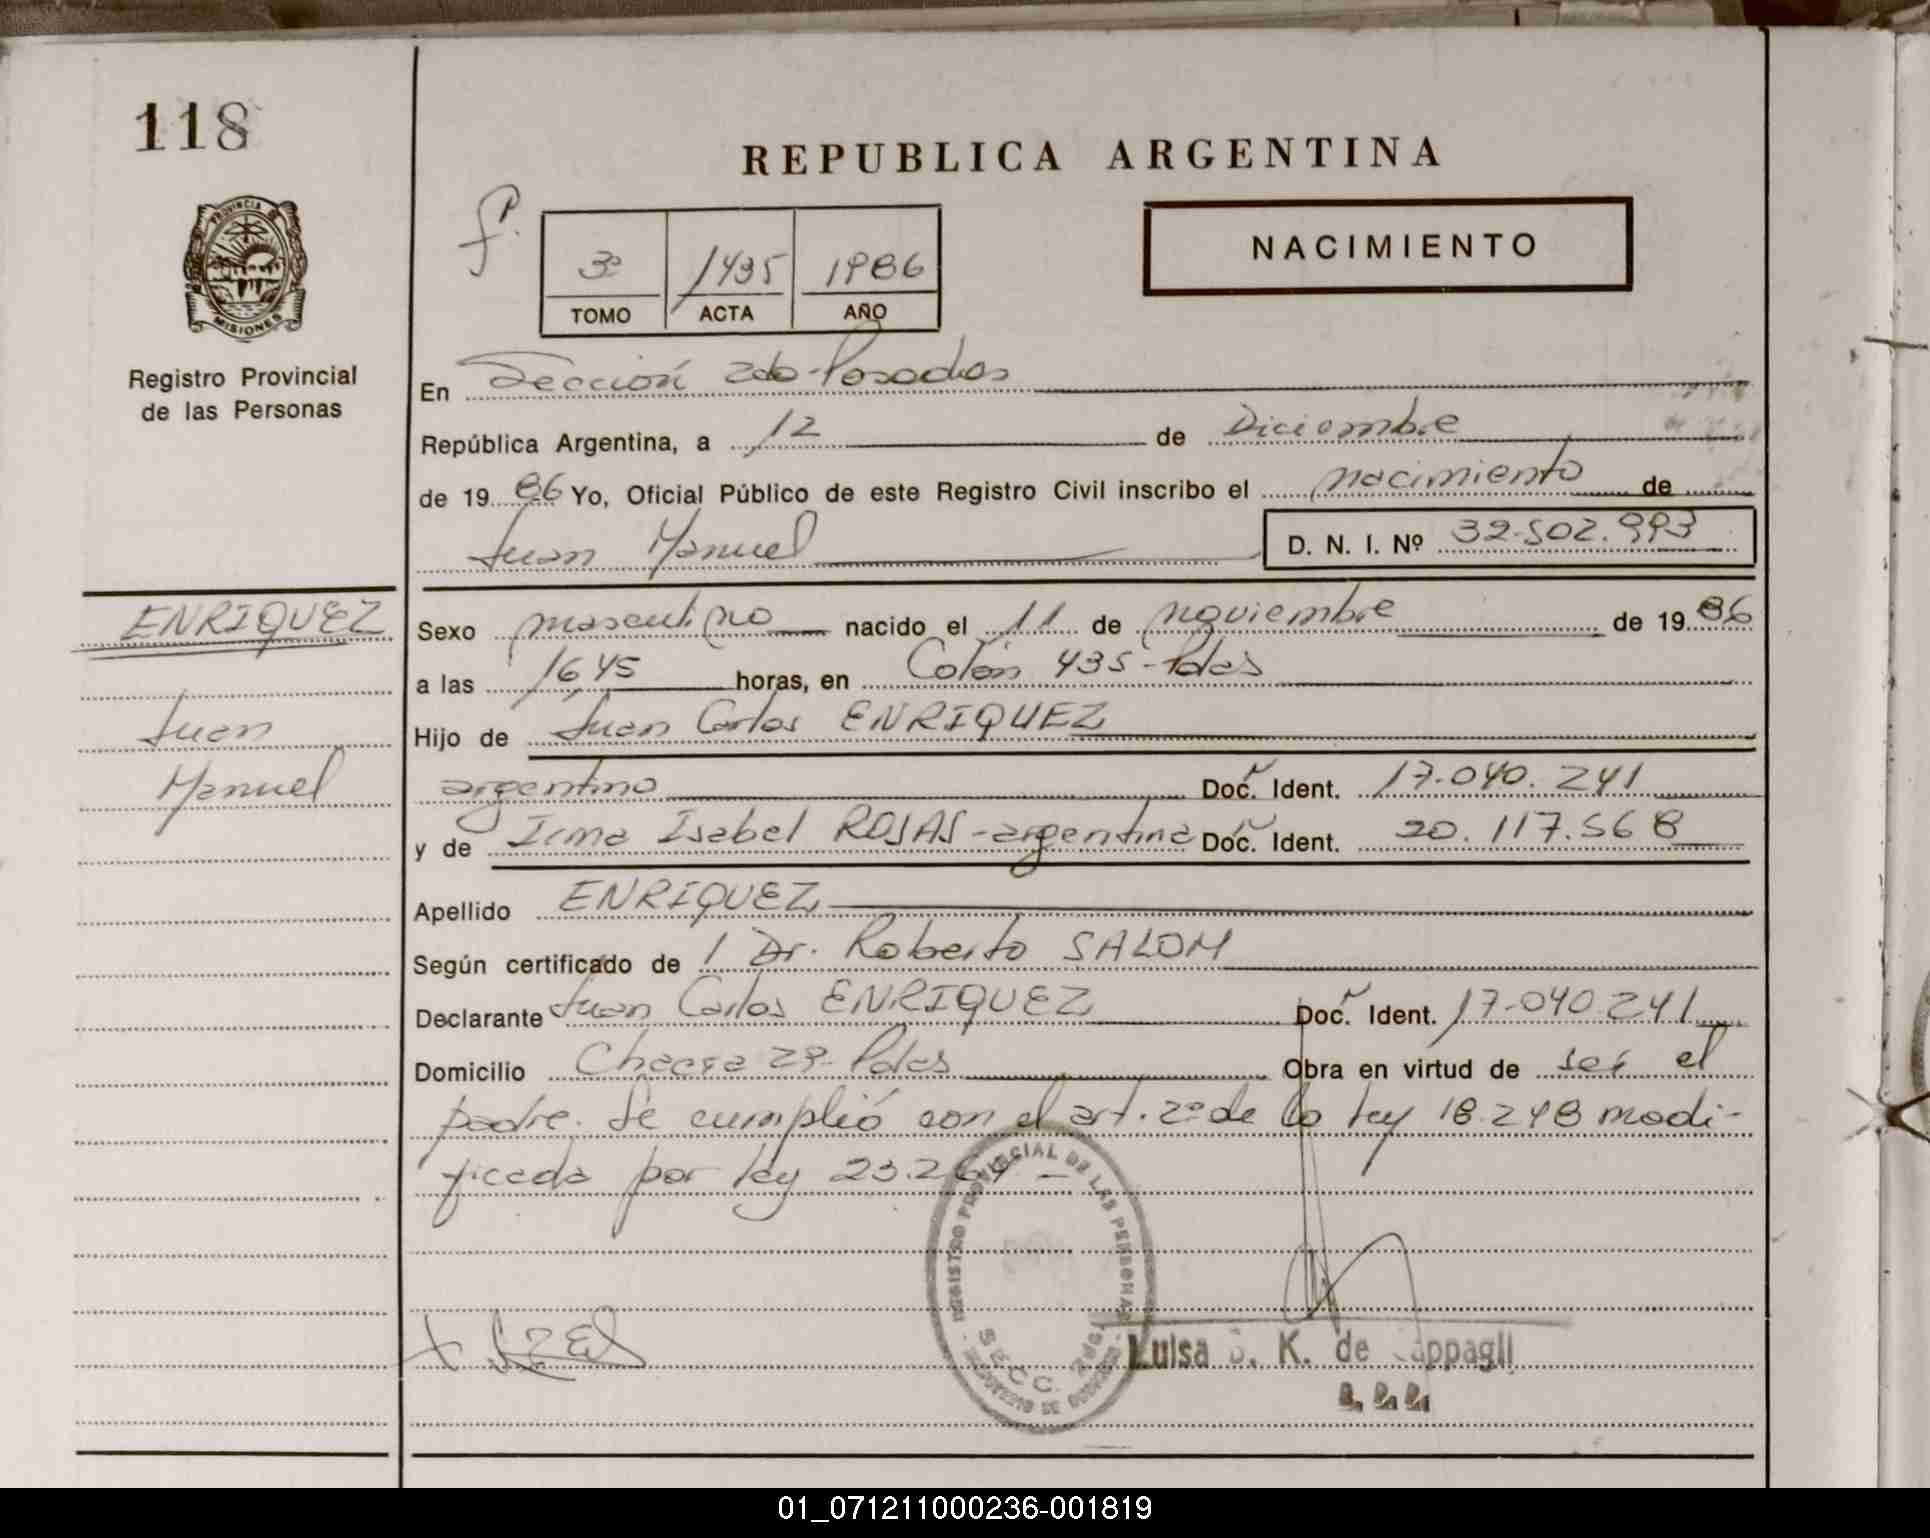 118
REPUBLICA ARGENTINA
PROVINCIA DE
MISIONES
Registro Provincial
de las Personas
3º 1435 1986
TOMO ACTA AÑO
NACIMIENTO
En Sección 2da-Posadas
República Argentina, a 12 de Diciembre
de 1986 Yo, Oficial Público de este Registro Civil inscribo el nacimiento de
Juan Manuel D. N. I. Nº 32.502.993
ENRIQUEZ
Juan
Manuel
Sexo masculino nacido el 11 de noviembre de 1986
a las 1645 horas, en Colón 435-Pdas
Hijo de Juan Carlos ENRIQUEZ
argentino Doc. Ident. 17.040.241
y de Irma Isabel ROJAS-argentina Doc. Ident. 20.117.568
Apellido ENRIQUEZ
Según certificado de 1 Dr. Roberto SALOM
Declarante Juan Carlos ENRIQUEZ Doc. Ident. 17.040.241
Domicilio Chacra 29-Pdas Obra en virtud de ser el
padre. Se cumplió con el art. 2º de la ley 18.248 modi-
ficada por ley 23.264-
REGISTRO PROVINCIAL DE LAS PERSONAS
SECC. 2da.
MINISTERIO DE GOBIERNO
Luisa K. de
01_071211000236-001819